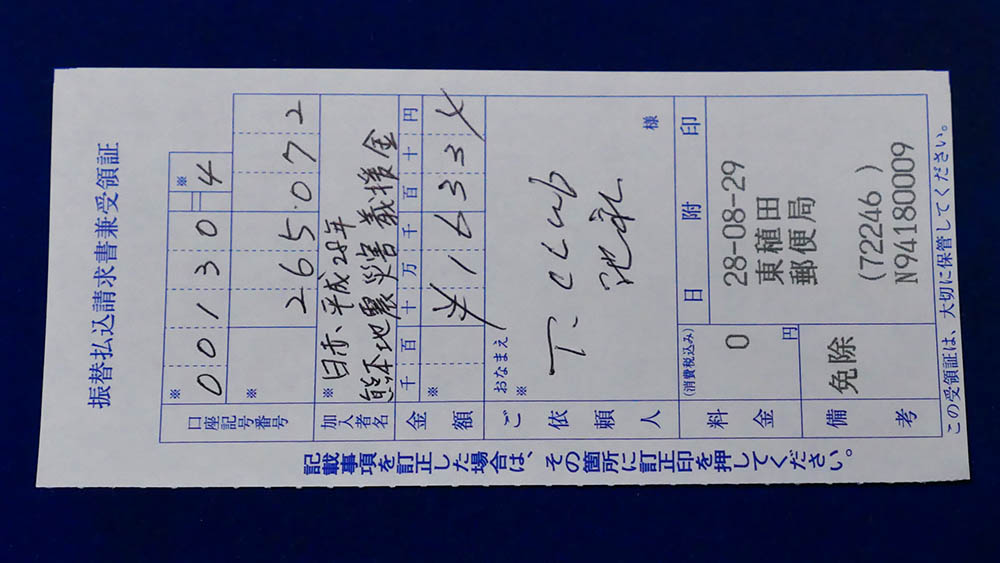 振替払込請求書兼受領証
口座記号番号
※
00130=4
※
※
265072
加入者名
※
日赤、平成28年
熊本地震災害義援金
金額
千百十万千百十円
※
¥16334
ご依頼人
おなまえ
※
様
料金
(消費税込み)
0
円
備考
免除
日附印
28-08-29
東植田
郵便局
(72246 )
N94180009
この受領証は、大切に保管してください。
記載事項を訂正した場合は、その箇所に訂正印を押してください。